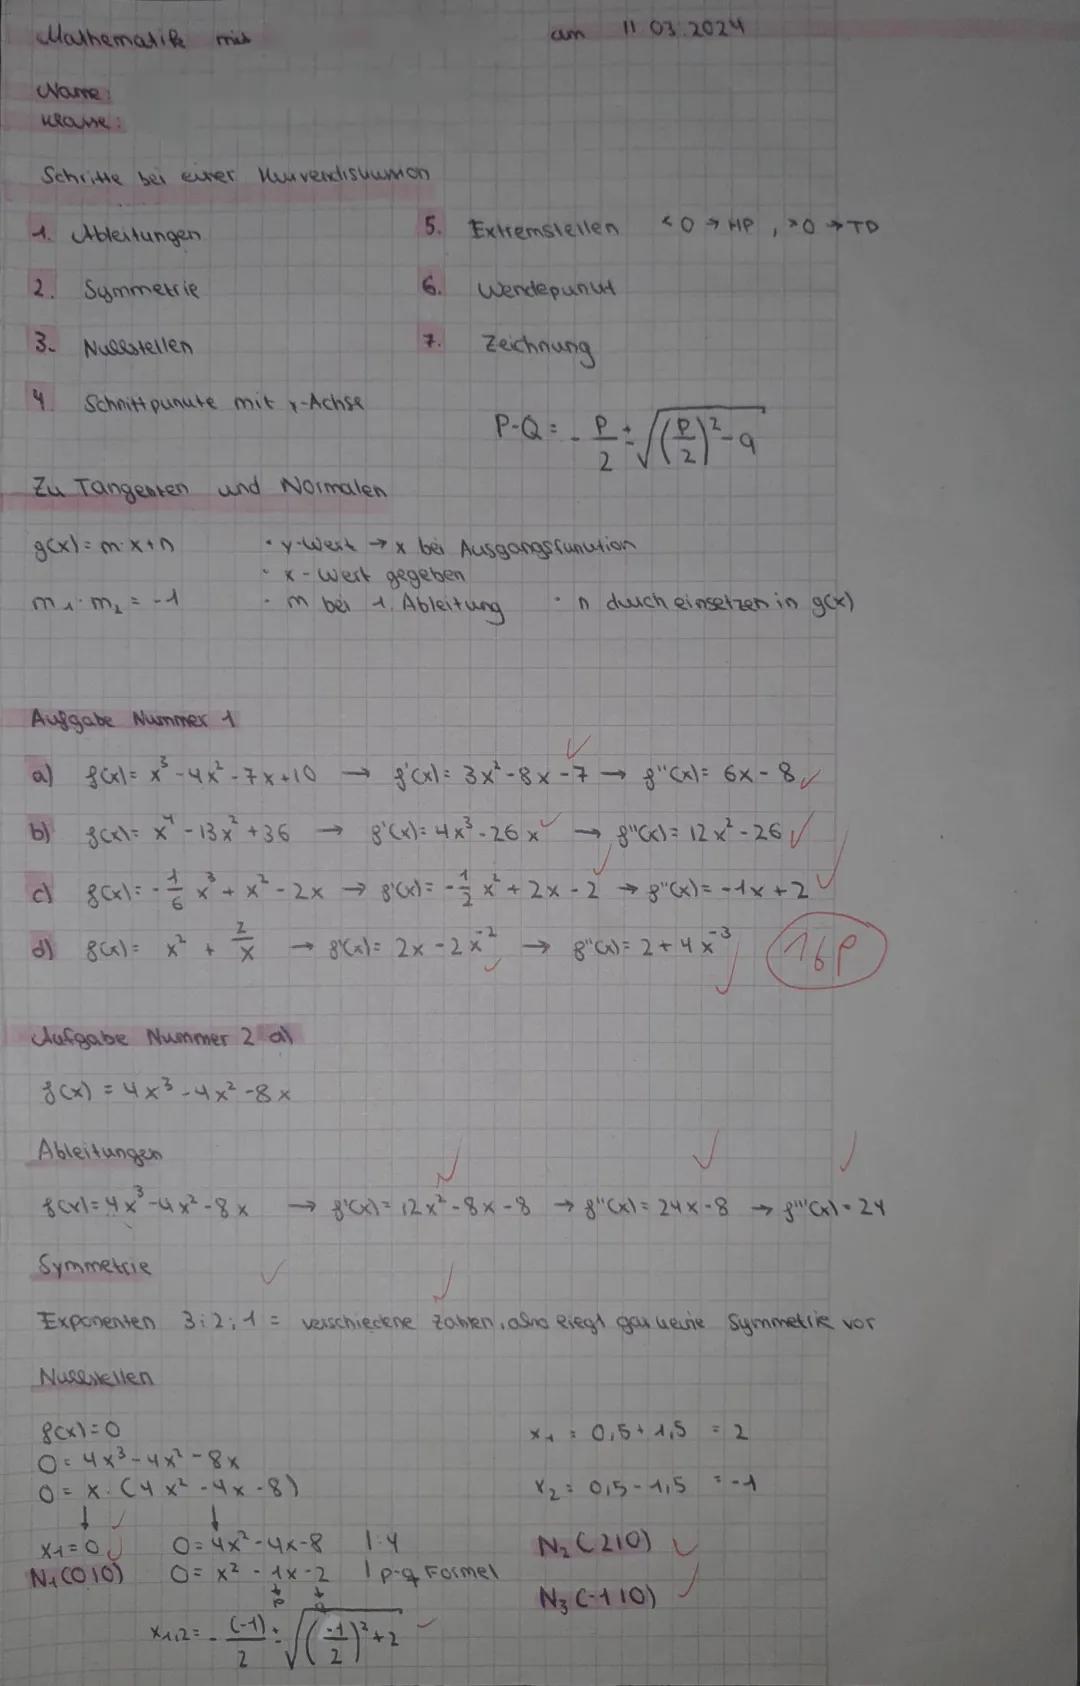 Mathematik mit am 11.03.2024
Name:
Klasse:
Schritte bei einer Kurvendiskussion
1. Ableitungen 5. Extremstellen <0 → HP, >0 → TP
2. Symmetrie 6. Wendepunkt
3. Nullstellen 7. Zeichnung
4 Schnittpunkte mit y-Achse
P-Q = - p/2 ± √((p/2)² - q)
Zu Tangenten und Normalen
g(x) = m·x+n · y-Wert → x bei Ausgangsfunktion
· x-Wert gegeben
m₁·m₂ = -1 · m bei 1. Ableitung · n durch einsetzen in g(x)
Aufgabe Nummer 1
a) f(x) = x³ - 4x² - 7x + 10 → f'(x) = 3x² - 8x - 7 → f''(x) = 6x - 8
b) f(x) = x⁴ - 13x² + 36 → f'(x) = 4x³ - 26x → f''(x) = 12x² - 26
c) f(x) = -1/6 x³ + x² - 2x → f'(x) = -1/2 x² + 2x - 2 → f''(x) = -1x + 2
d) f(x) = x² + 2/x → f'(x) = 2x - 2x⁻² → f''(x) = 2 + 4x⁻³ 16P
Aufgabe Nummer 2 a)
f(x) = 4x³ - 4x² - 8x
Ableitungen
f(x) = 4x³ - 4x² - 8x → f'(x) = 12x² - 8x - 8 → f''(x) = 24x - 8 → f'''(x) = 24
Symmetrie
Exponenten 3;2;1 = verschiedene Zahlen, also liegt gar keine Symmetrie vor
Nullstellen
f(x) = 0 x₁ = 0,5 + 1,5 = 2
0 = 4x³ - 4x² - 8x
0 = x · (4x² - 4x - 8) x₂ = 0,5 - 1,5 = -1
↓ ↓
x₁ = 0 0 = 4x² - 4x - 8 | :4 N₂ (2|0)
N₁ (0|0) 0 = x² - 1x - 2 | p-q Formel
↓ ↓ N₃ (-1|0)
p q
x₁,₂ = - (-1)/2 ± √((-1/2)² + 2)